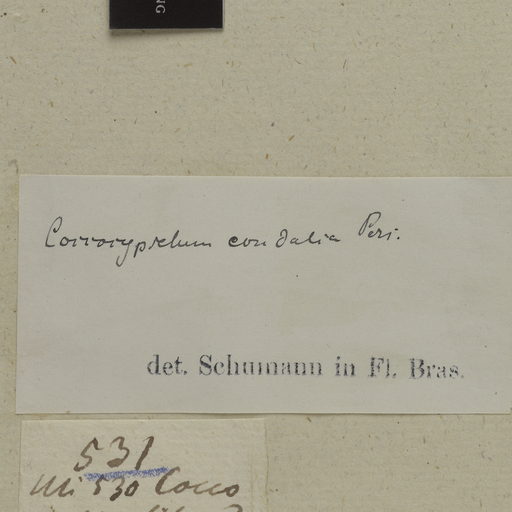 NG
Coccocypselum condalia Pers.
det. Schumann in Fl. Bras.
531
530 Cocco